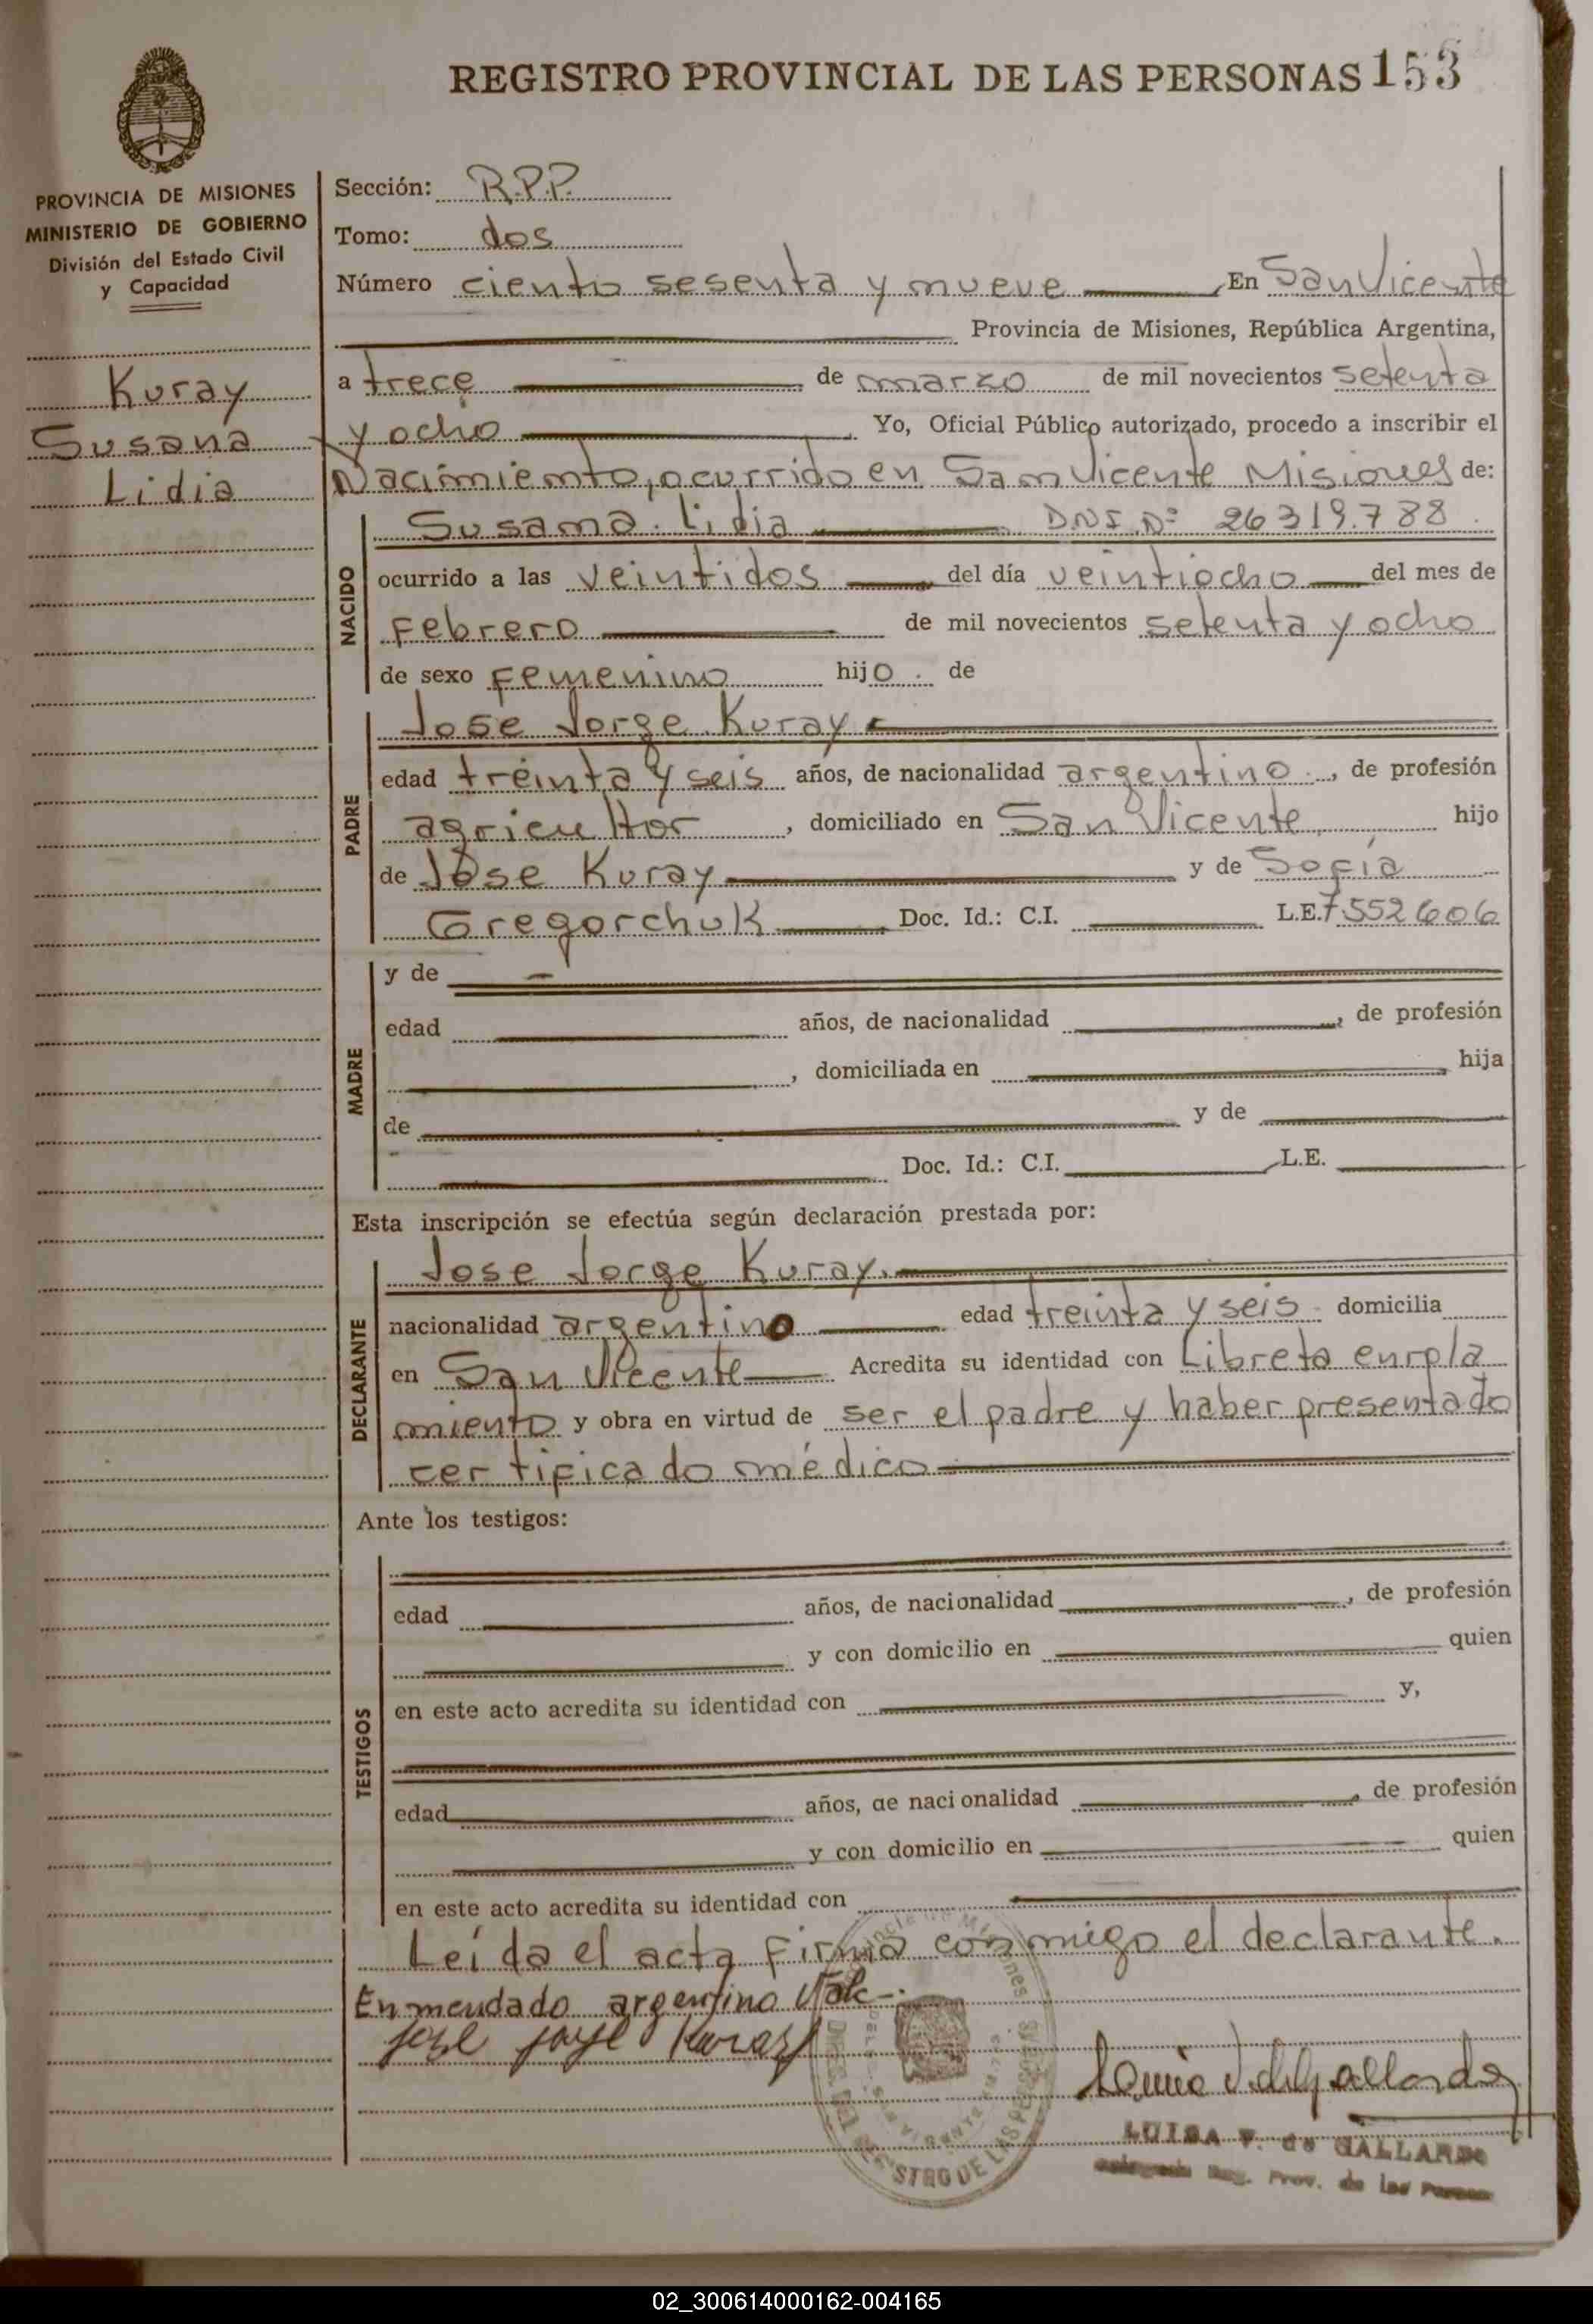 REGISTRO PROVINCIAL DE LAS PERSONAS 153
PROVINCIA DE MISIONES
MINISTERIO DE GOBIERNO
División del Estado Civil
y Capacidad
Kuray
Susana
Lidia
Sección: R.P.P.
Tomo: dos
Número ciento sesenta y nueve En San Vicente
Provincia de Misiones, República Argentina,
a trece de marzo de mil novecientos setenta
y ocho Yo, Oficial Público autorizado, procedo a inscribir el
Nacimiento, ocurrido en San Vicente Misiones de:
NACIDO
Susana Lidia DNI Nº 26319.788
ocurrido a las veintidos del día veintiocho del mes de
Febrero de mil novecientos setenta y ocho
de sexo Femenino hijo de
PADRE
Jose Jorge Kuray
edad treinta y seis años, de nacionalidad argentino, de profesión
agricultor, domiciliado en San Vicente hijo
de Jose Kuray y de Sofía
Gregorchuk Doc. Id.: C.I. L.E. 7552606
MADRE
y de
edad años, de nacionalidad , de profesión
, domiciliada en hija
de y de
Doc. Id.: C.I. L.E.
Esta inscripción se efectúa según declaración prestada por:
DECLARANTE
Jose Jorge Kuray
nacionalidad argentino edad treinta y seis domicilia
en San Vicente Acredita su identidad con Libreta enrola
miento y obra en virtud de ser el padre y haber presentado
certificado médico
Ante los testigos:
TESTIGOS
edad años, de nacionalidad , de profesión
y con domicilio en quien
en este acto acredita su identidad con y,
edad años, de nacionalidad , de profesión
y con domicilio en quien
en este acto acredita su identidad con
Leída el acta firma conmigo el declarante.
Enmendado argentino Vale-.
Jose Jorge Kuray
LUISA V. de GALLARDO
Reg. Prov. de las Personas
02_300614000162-004165